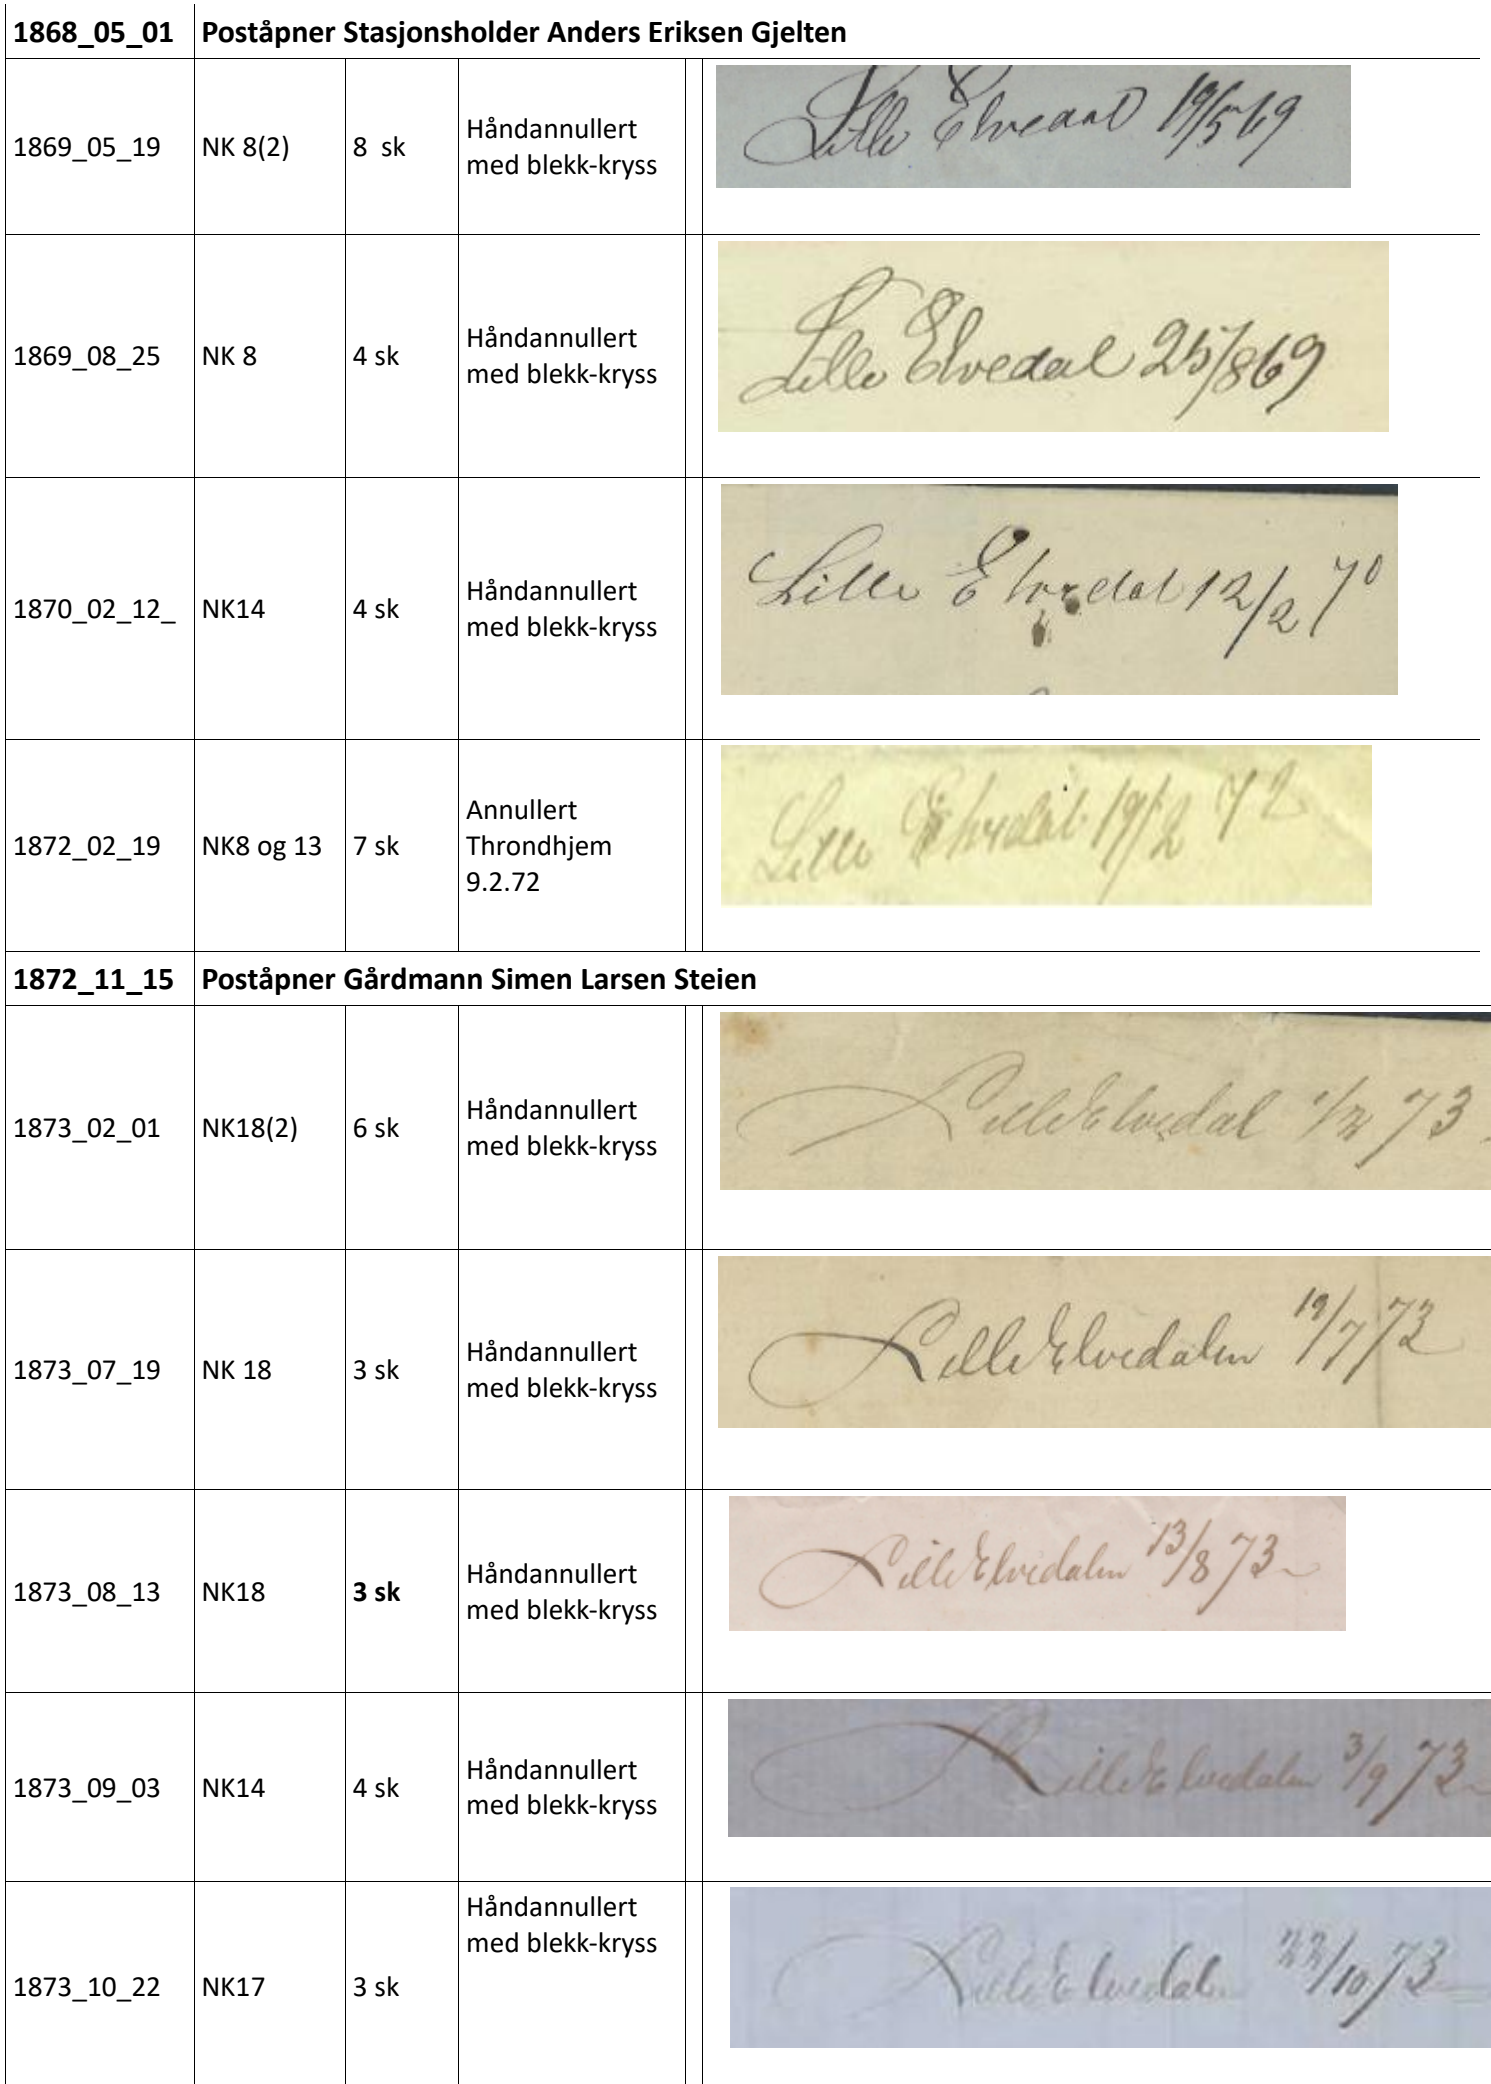 1868_05_01 Poståpner Stasjonsholder Anders Eriksen Gjelten
1869_05_19 NK 8(2) 8 sk Håndannullert med blekk-kryss
Lille Elvedal 19/5 69
1869_08_25 NK 8 4 sk Håndannullert med blekk-kryss
Lille Elvedal 25/8 69
1870_02_12_ NK14 4 sk Håndannullert med blekk-kryss
Lille Elvedal 12/2 70
1872_02_19 NK8 og 13 7 sk Annullert Throndhjem 9.2.72
Lille Elvedal 19/2 72
1872_11_15 Poståpner Gårdmann Simen Larsen Steien
1873_02_01 NK18(2) 6 sk Håndannullert med blekk-kryss
Lille Elvedal 1/2 73
1873_07_19 NK 18 3 sk Håndannullert med blekk-kryss
Lille Elvedalen 19/7 73
1873_08_13 NK18 3 sk Håndannullert med blekk-kryss
Lille Elvedalen 13/8 73
1873_09_03 NK14 4 sk Håndannullert med blekk-kryss
Lille Elvedalen 3/9 73
1873_10_22 NK17 3 sk Håndannullert med blekk-kryss
Lille 22/10 73